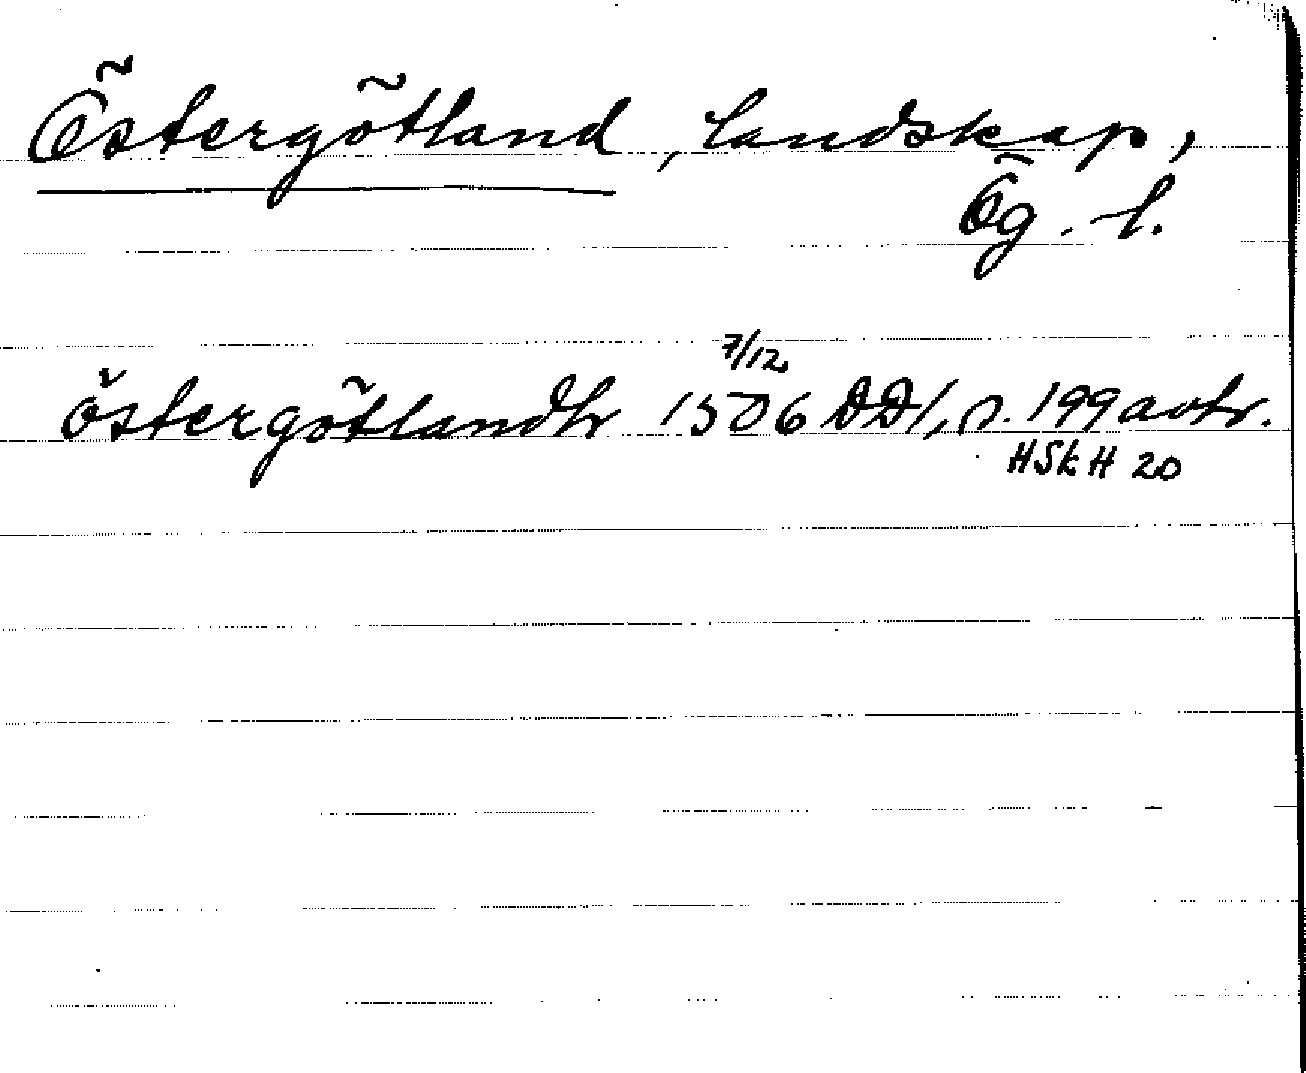 Östergötland, landskap,
Ög. l.
7/12
östergötlandh 1506 DD1, s. 199 avtr.
HSkH 20